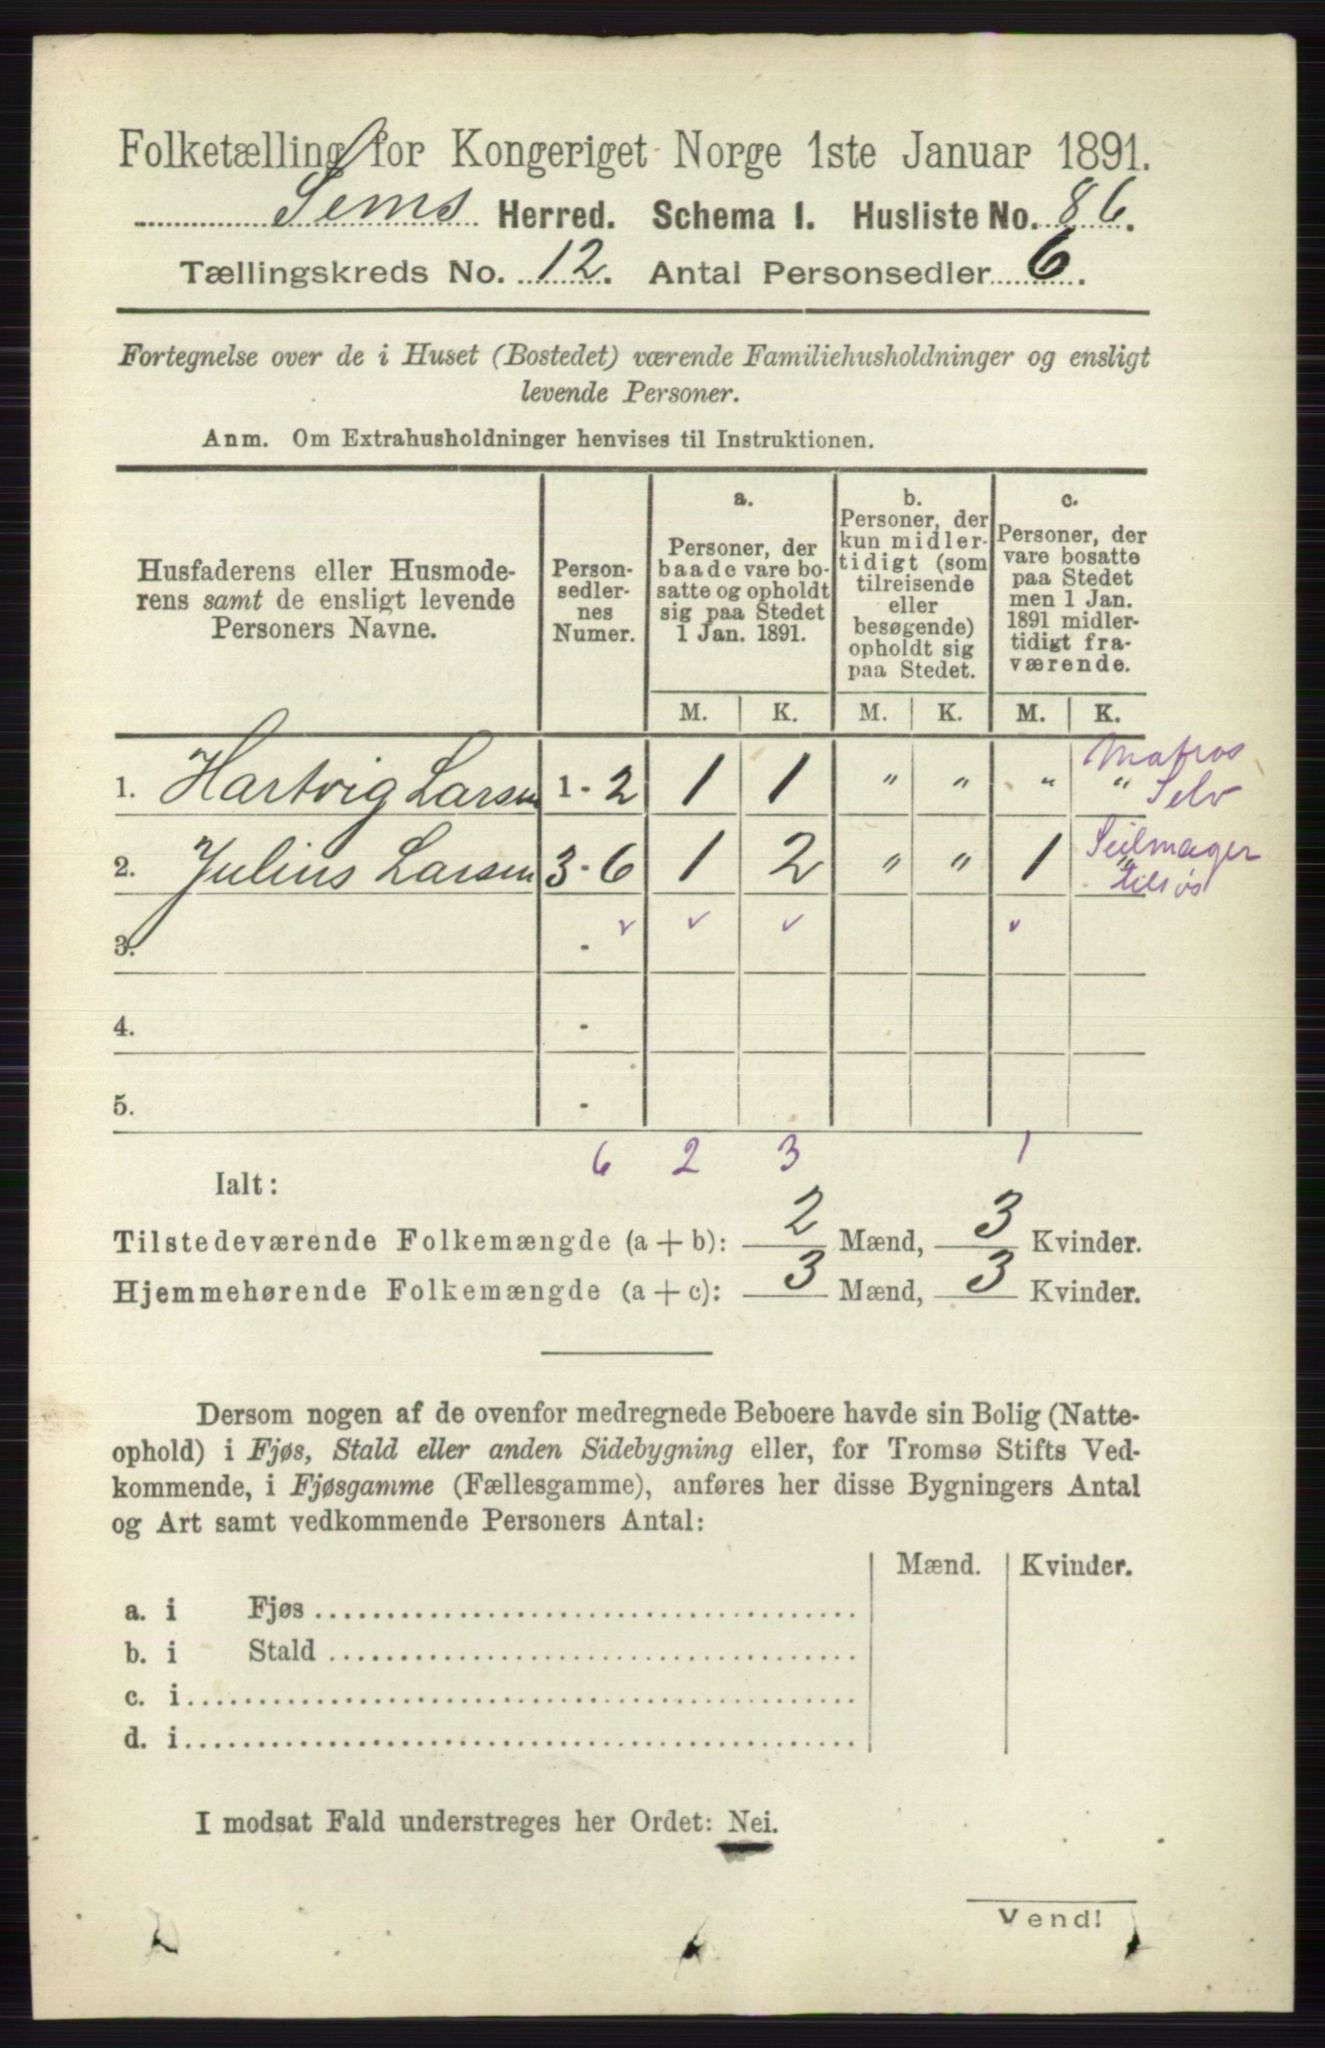 Folketælling for Kongeriget Norge 1ste Januar 1891.
Sems Herred. Schema 1. Husliste No. 86.
Tællingskreds No. 12. Antal Personsedler 6.
Fortegnelse over de i Huset (Bostedet) værende Familiehusholdninger og ensligt
levende Personer.
Anm. Om Extrahusholdninger henvises til Instruktionen.
Husfaderens eller Husmode-
rens samt de ensligt levende
Personers Navne.
Person-
sedler-
nes
Numer.
a.
Personer, der
baade vare bo-
satte og opholdt
sig paa Stedet
1 Jan. 1891.
b.
Personer, der
kun midler-
tidigt (som
tilreisende
eller
besøgende)
opholdt sig
paa Stedet.
c.
Personer, der
vare bosatte
paa Stedet
men 1 Jan.
1891 midler-
tidigt fra-
værende.
M. K. M. K. M. K.
Matros
1. Hartvig Larsen 1 - 2 1 1 " " " "
Selv
Seilmager
2. Julius Larsen 3 - 6 1 2 " " 1 "
tilsøs
3. -
4. -
5. -
6 2 3 1
Ialt:
Tilstedeværende Folkemængde (a + b): 2 Mænd, 3 Kvinder.
Hjemmehørende Folkemængde (a + c): 3 Mænd, 3 Kvinder.
Dersom nogen af de ovenfor medregnede Beboere havde sin Bolig (Natte-
ophold) i Fjøs, Stald eller anden Sidebygning eller, for Tromsø Stifts Ved-
kommende, i Fjøsgamme (Fællesgamme), anføres her disse Bygningers Antal
og Art samt vedkommende Personers Antal:
Mænd. Kvinder.
a. i Fjøs
b. i Stald
c. i
d. i
I modsat Fald understreges her Ordet: Nei.
Vend!